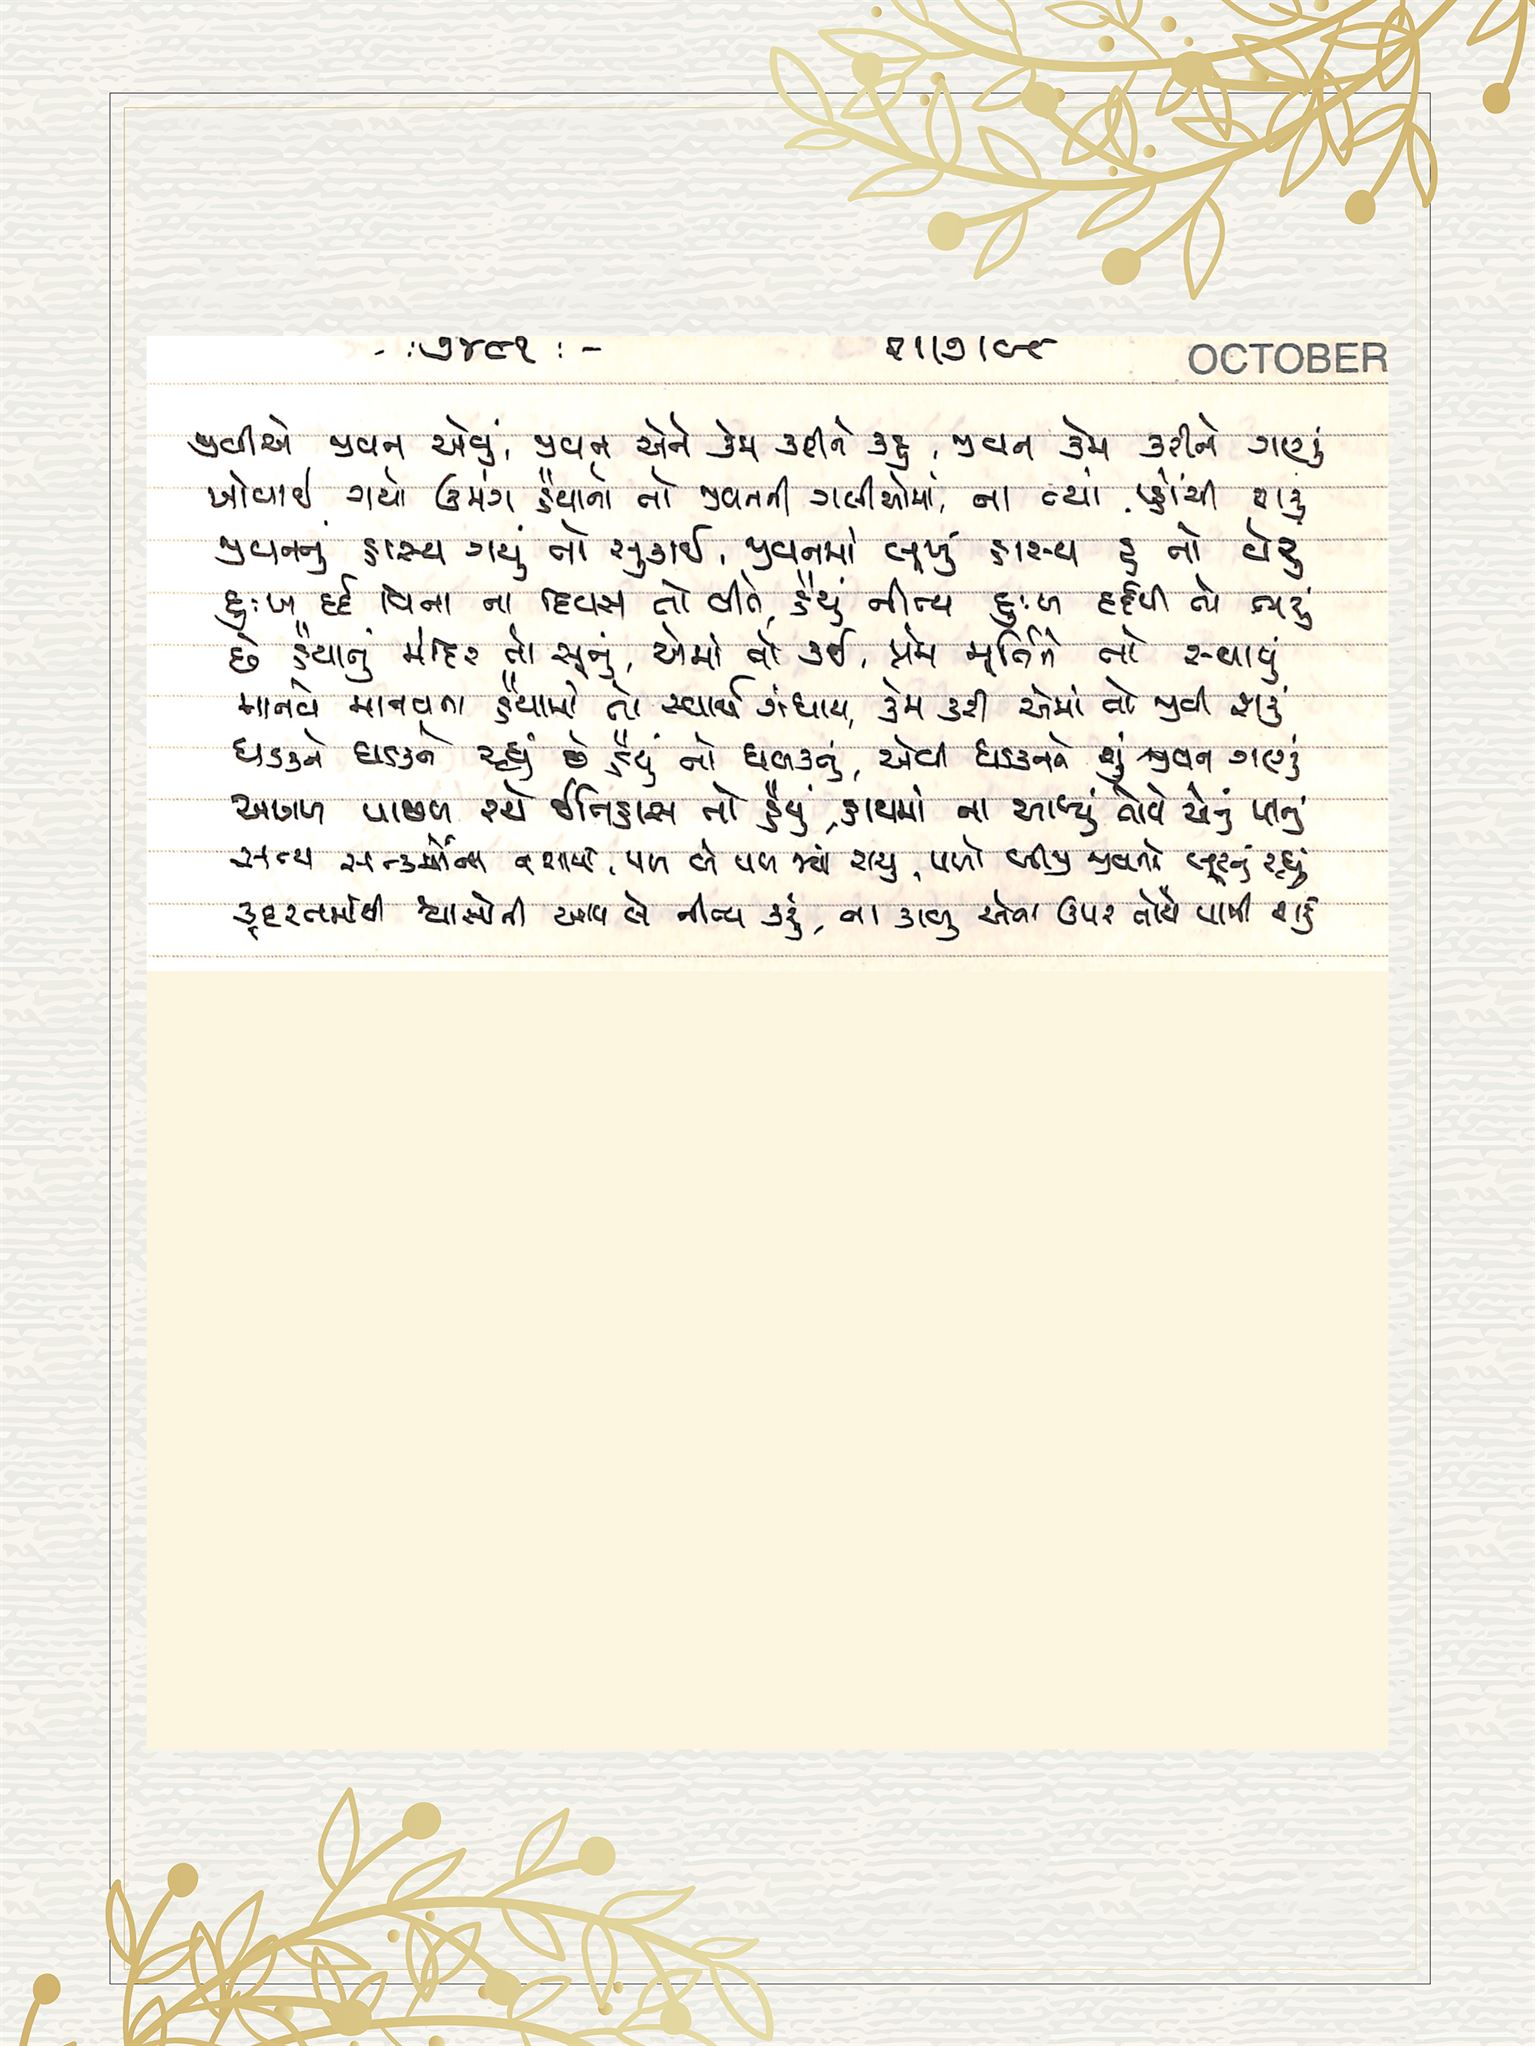 -: ૭૪૯૧ :- OCTOBER
જીવીએ જીવન એવું, જીવન એને કેમ કરીને કહું, જીવન કેમ કરીને ગણું
ખોવાઈ ગયો ઉમંગ હૈયાનો તો જીવનની ગલીઓમાં, ના ત્યાં પ્હોંચી શકું
જીવનનું હાસ્ય ગયું તો સુકાઈ, જીવનમાં લૂખું હાસ્ય હું તો વેરુ
દુઃખ દર્દ વિના ના દિવસ તો વીતે, હૈયું નીત્ય દુઃખ દર્દથી તો
છે હૈયાનું મંદિર તો સૂનું, એમાં તો કઈ, પ્રેમ મૂર્તિને તો સ્થાપું
માનવે માનવના હૈયામાં તો સ્વાર્થ ગંધાય, કેમ કરી એમાં તો જીવી શકું
ધડકને ધડકને રહ્યું છે હૈયું તો ધબકતું, એવી ધડકનને શું જીવન ગણું
આગળ પાછળ રચે ઈતિહાસ તો હૈયું, હાથમાં ના આવ્યું તોયે એનું પાનું
સત્ય નશામાં, પળ બે પળ જ્યાં રાચુ, પળો બીજી જીવનનો રહ્યું
કુદરતમાંથી શ્વાસોની આવ લે નીત્ય કરું, ના કાબૂ એના ઉપર તોયે પામી શકું